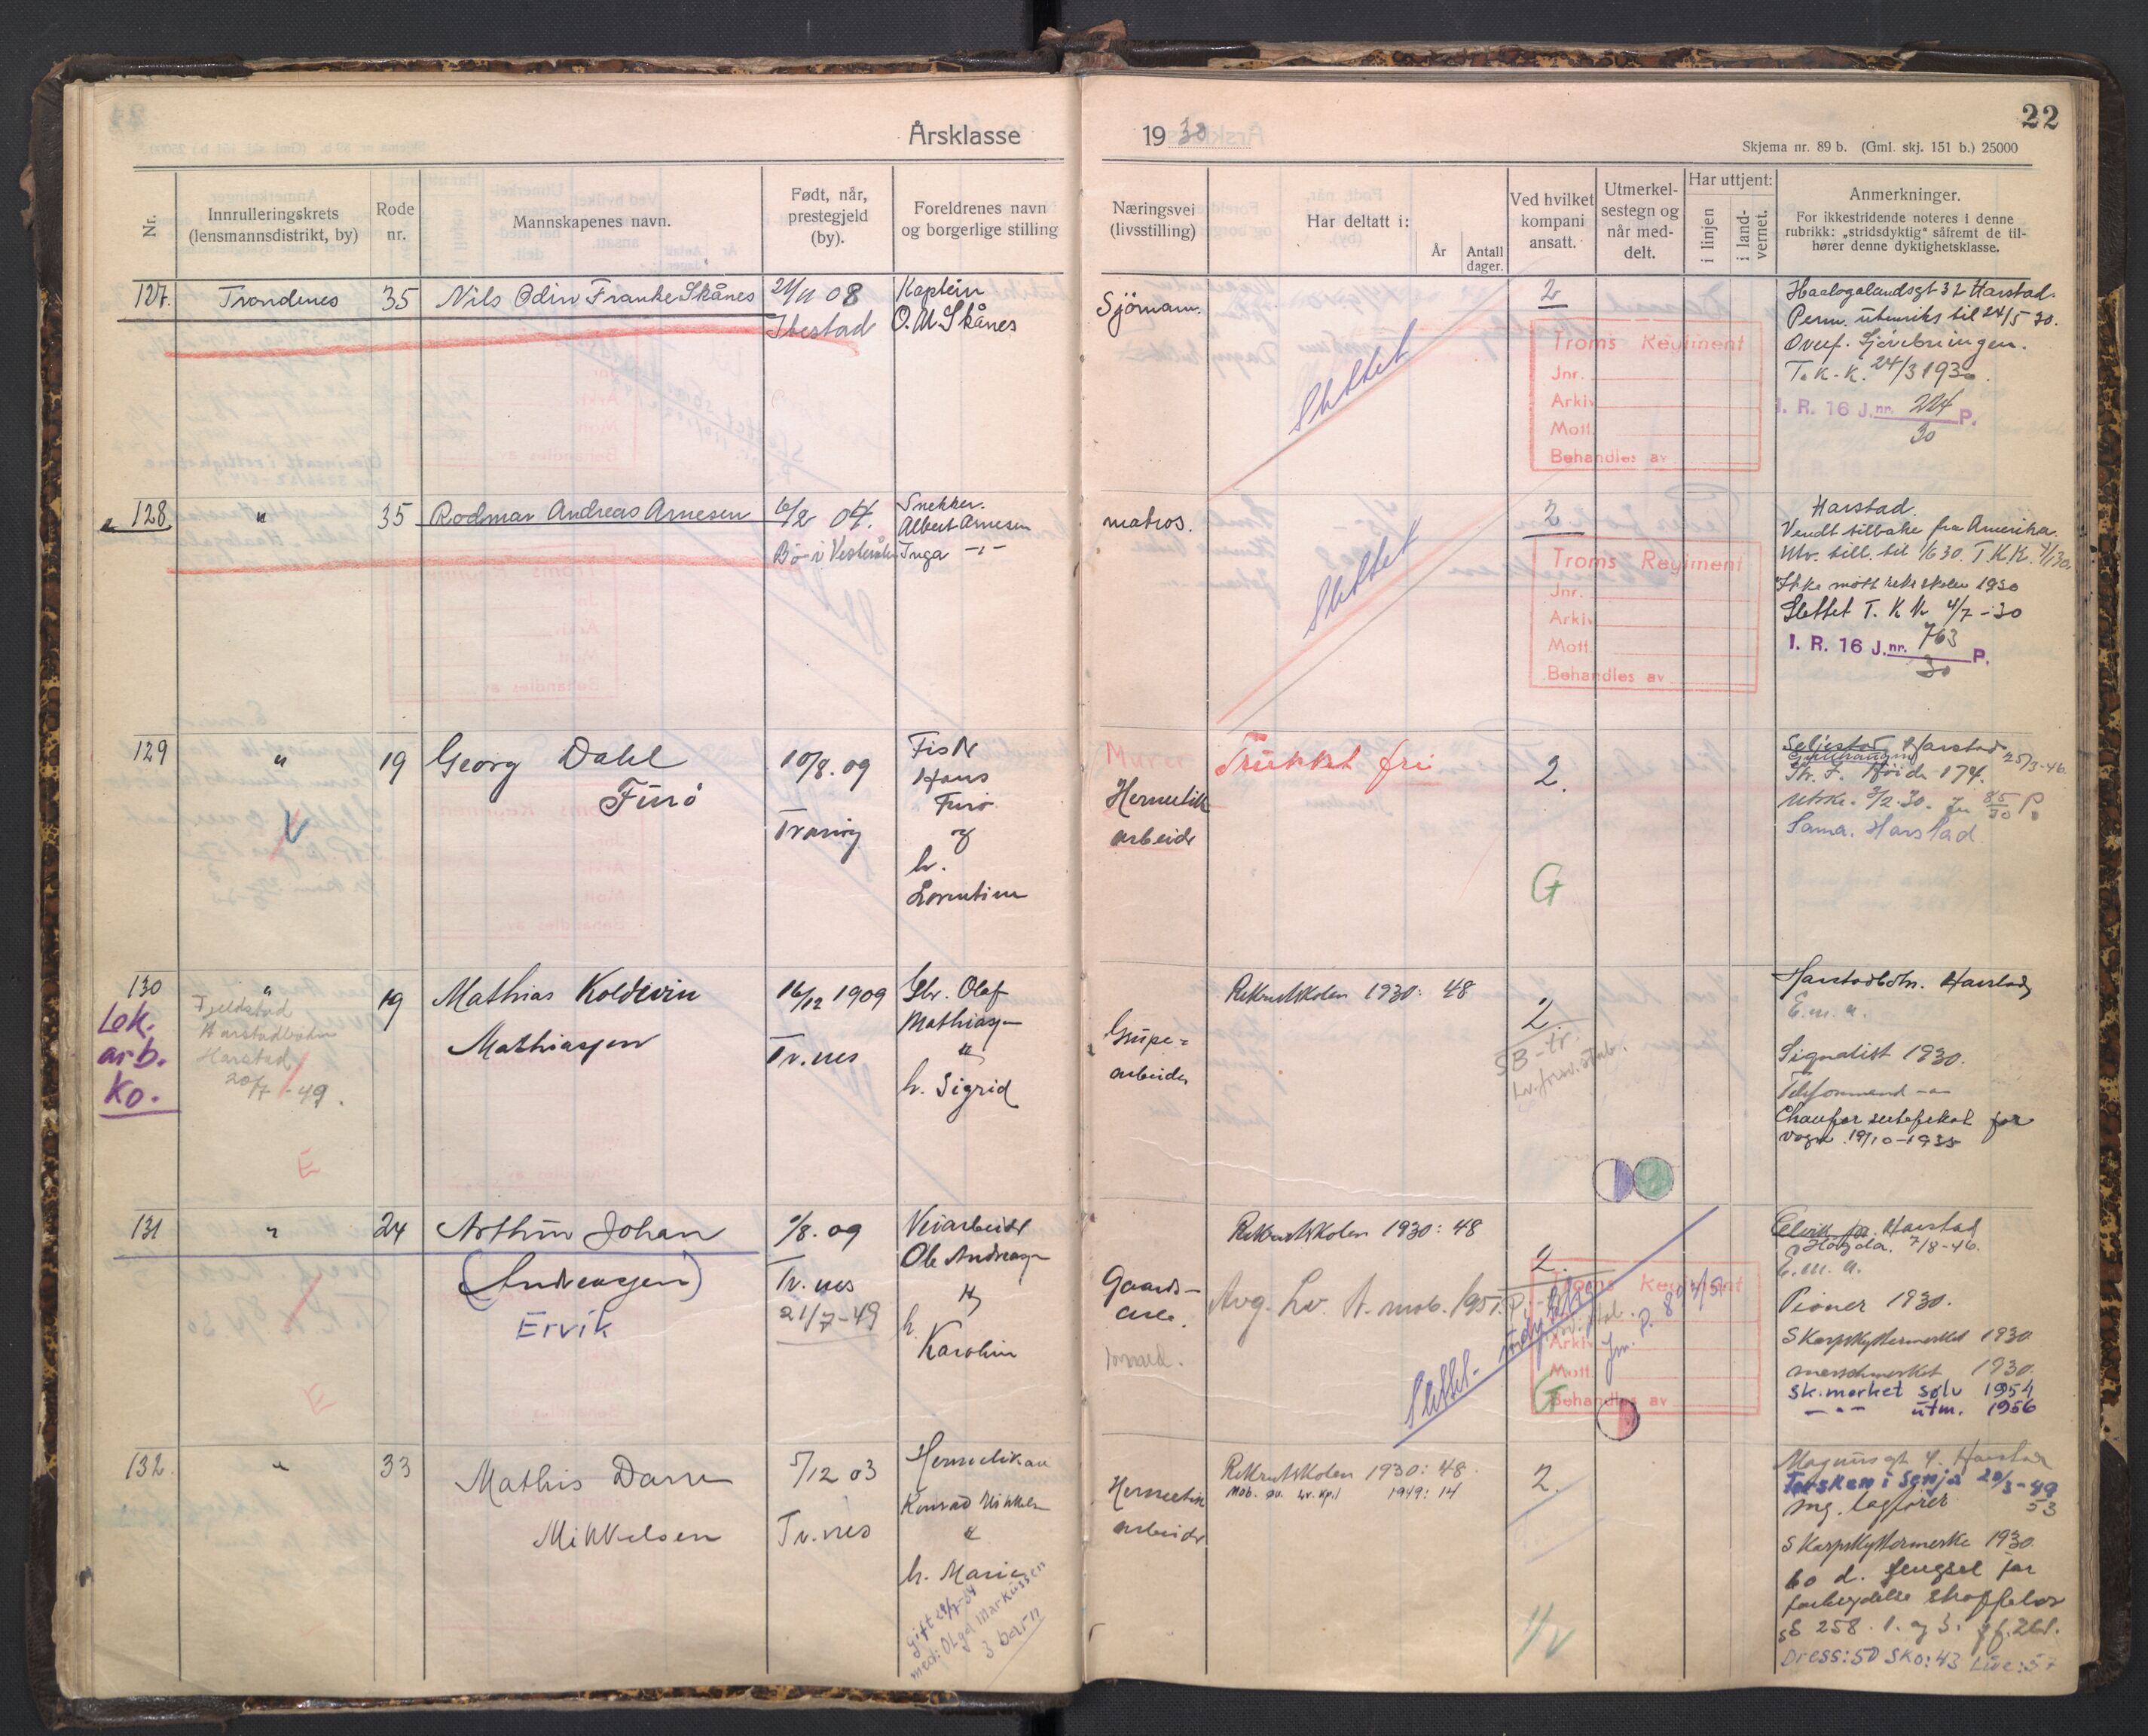 Årsklasse
1930
22
Skjema nr. 89 b. (Gml. skj. 151 b.) 25000
Nr.
Innrulleringskrets
(lensmannsdistrikt, by)
Rode
nr.
Mannskapenes navn.
Født, når,
prestegjeld
(by).
Foreldrenes navn
og borgerlige stilling
Næringsvei
(livsstilling)
Har deltatt i:
År
Antall
dager.
Ved hvilket
kompani
ansatt.
Utmerkel-
sestegn og
når med-
delt.
Har uttjent:
i linjen
i land-
vernet.
Anmerkninger.
For ikkestridende noteres i denne
rubrikk: „stridsdyktig" såfremt de til-
hører denne dyktighetsklasse.
127.
Trondenes
35
Nils Odin Franke Skånes
24/11 08
Ibestad
Kaptein
O. M. Skånes
Sjömann.
Slettet
2
Troms Regiment
Jnr.
Arkiv
Mott.
Behandles av
Haalogalandsgt 32 Harstad.
Perm. utenriks til 24/5 30.
Overf. Sjövebringen.
T. K. K. 24/3 1930.
I. R. 16 J.nr. 224 P.
30
128
"
35
Rodmar Andreas Arnesen
6/2 04.
Bö i Vesterålen
Snekker.
Albert Arnesen
Inga -"-
matros.
Slettet
2
Troms Regiment
Jnr.
Arkiv
Mott.
Behandles av
Harstad.
Vendt tilbake fra Amerika.
Utv. till. til 1/6 30. T.K.K.
Ikke mött rekr.skolen 1930
Slettet T. K. K. 4/7 - 30
I. R. 16 J.nr. 763 P.
30
129
"
19
Georg Dahl
Furö
10/8. 09
Tranöy
Fisk
Hans
Furö
og
h.
Lorentine
Murer
Hermetikk
arbeider
Trukket fri
2.
G
Seljestad Harstad
25/3-46
Str. F. Höide 174.
Utskr. 3/2. 30. Jn 85/30 P.
Sama. Harstad
130
Lok.
arb.
Ko.
"
Fjeldstad
Harstadbotn
Harstad
20/7 - 49.
E
19
Mathias Koldevin
Mathiassen
16/12 1909
Tr.nes
Gbr. Olaf
Mathiassen
"
h. Sigrid
Grube-
arbeider
Rekrutskolen 1930: 48
2.
SB-tr.
Lv. forsv. stab.
Harstadbotn. Harstad
E. m. a.
Signalist 1930.
Telefonmand -"-
Chaufør sertifikat for
vogn 19/10-1935
131
"
E
24
Arthur Johan
(Andreasen)
Ervik
1/8. 09
Tr. nes
21/7-49
Veiarbeider
Ole Andreasen
"
h.
Karoline
Gaards-
arb.
Rekrutskolen 1930: 48
Avg. Lv. A. mob. 1951.
Slettet
2.
Troms Regiment
Arkiv
Mott.
Behandles av
G
Elvik pr. Harstad
Högda. 7/8-46.
E. m. a.
Pioner 1930.
Skarpskyttermerket 1930
marschmerket 1930.
Sk.merket sølv 1954
- " - utm. 1956
132.
"
33
Mathis Dann
Mikkelsen
5/12 03
Tr. nes
Hermetikarb
Konrad Mikkelsen
"
h. Marie
gift
med: Olga Markussen
3 barn
Hermetikk
arbeider
Rekrutskolen 1930: 48.
Mob. øv. Lv. Kp. 1 1949: 14
2.
Magnusgt 4. Harstad
Torsken i Senja 20/3-49
53
mg. lagfører
Skarpskyttermerke 1930.
60 d. fengsel for
forbrydelse straffelov
§§ 258. 1. og 3. jf. 261.
Dress: 50 Sko: 43 Lue: 57